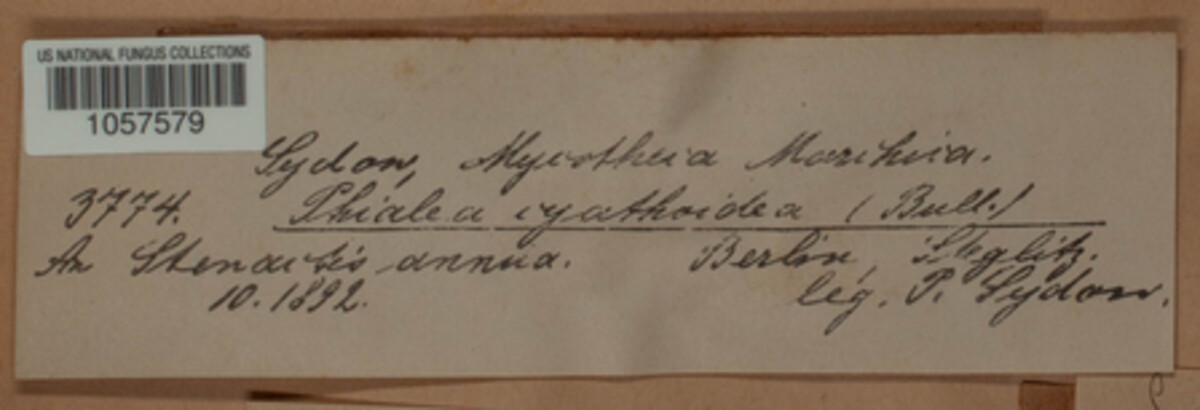 US NATIONAL FUNGUS COLLECTIONS
1057579
Sydow, Mycotheca Marchica.
3774. Phialea cyathoidea (Bull.)
An Stenactis annua. Berlin, Steglitz.
10. 1892. leg. P. Sydow.